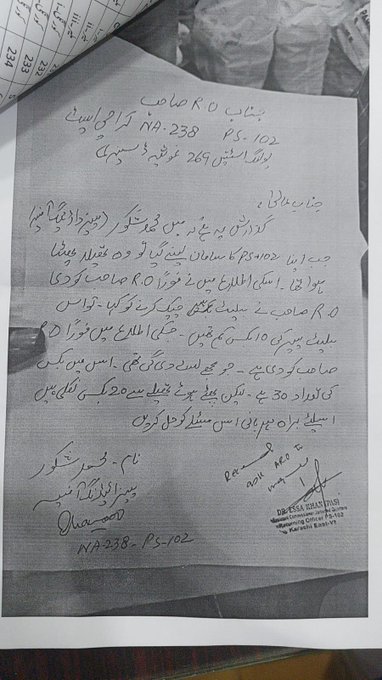 232
233
234
جناب RO صاحب
NA-238 PS-102 کراچی ایسٹ
پولنگ اسٹیشن 269 غوثیہ
جناب عالی!
گزارش یہ ہے کہ میں محمد شکور (پریزائیڈنگ آفیسر)
جب اپنا PS-102 کا سامان لینے گیا تو وہ تھیلہ پھٹا
ہوا تھا۔ اسکی اطلاع میں نے فوراً RO صاحب کو دی
RO صاحب نے بیلیٹ بکس چیک کرنے کو کہا۔ تو اس
بیلیٹ پیپر کی 10 بکس کم تھیں۔ جسکی اطلاع میں فوراً RO
صاحب کو دی ہے۔ جو مجھے لسٹ دی گئی تھی۔ اس میں بکس
کی تعداد 30 ہے۔ لیکن پھٹے ہوئے تھیلے سے 20 بکس نکلی ہیں
اسلئے براہ مہربانی اس مسئلے کو حل کریں
نام - محمد شکور
پریزائیڈنگ آفیسر
NA-238 - PS-102
Received
ARO II
DR. ESSA KHAN (PAS)
Returning Officer PS-102
Karachi East-VI